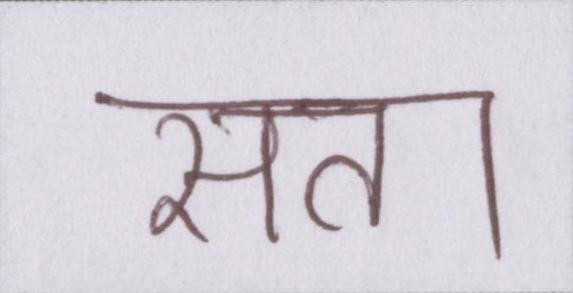 सता